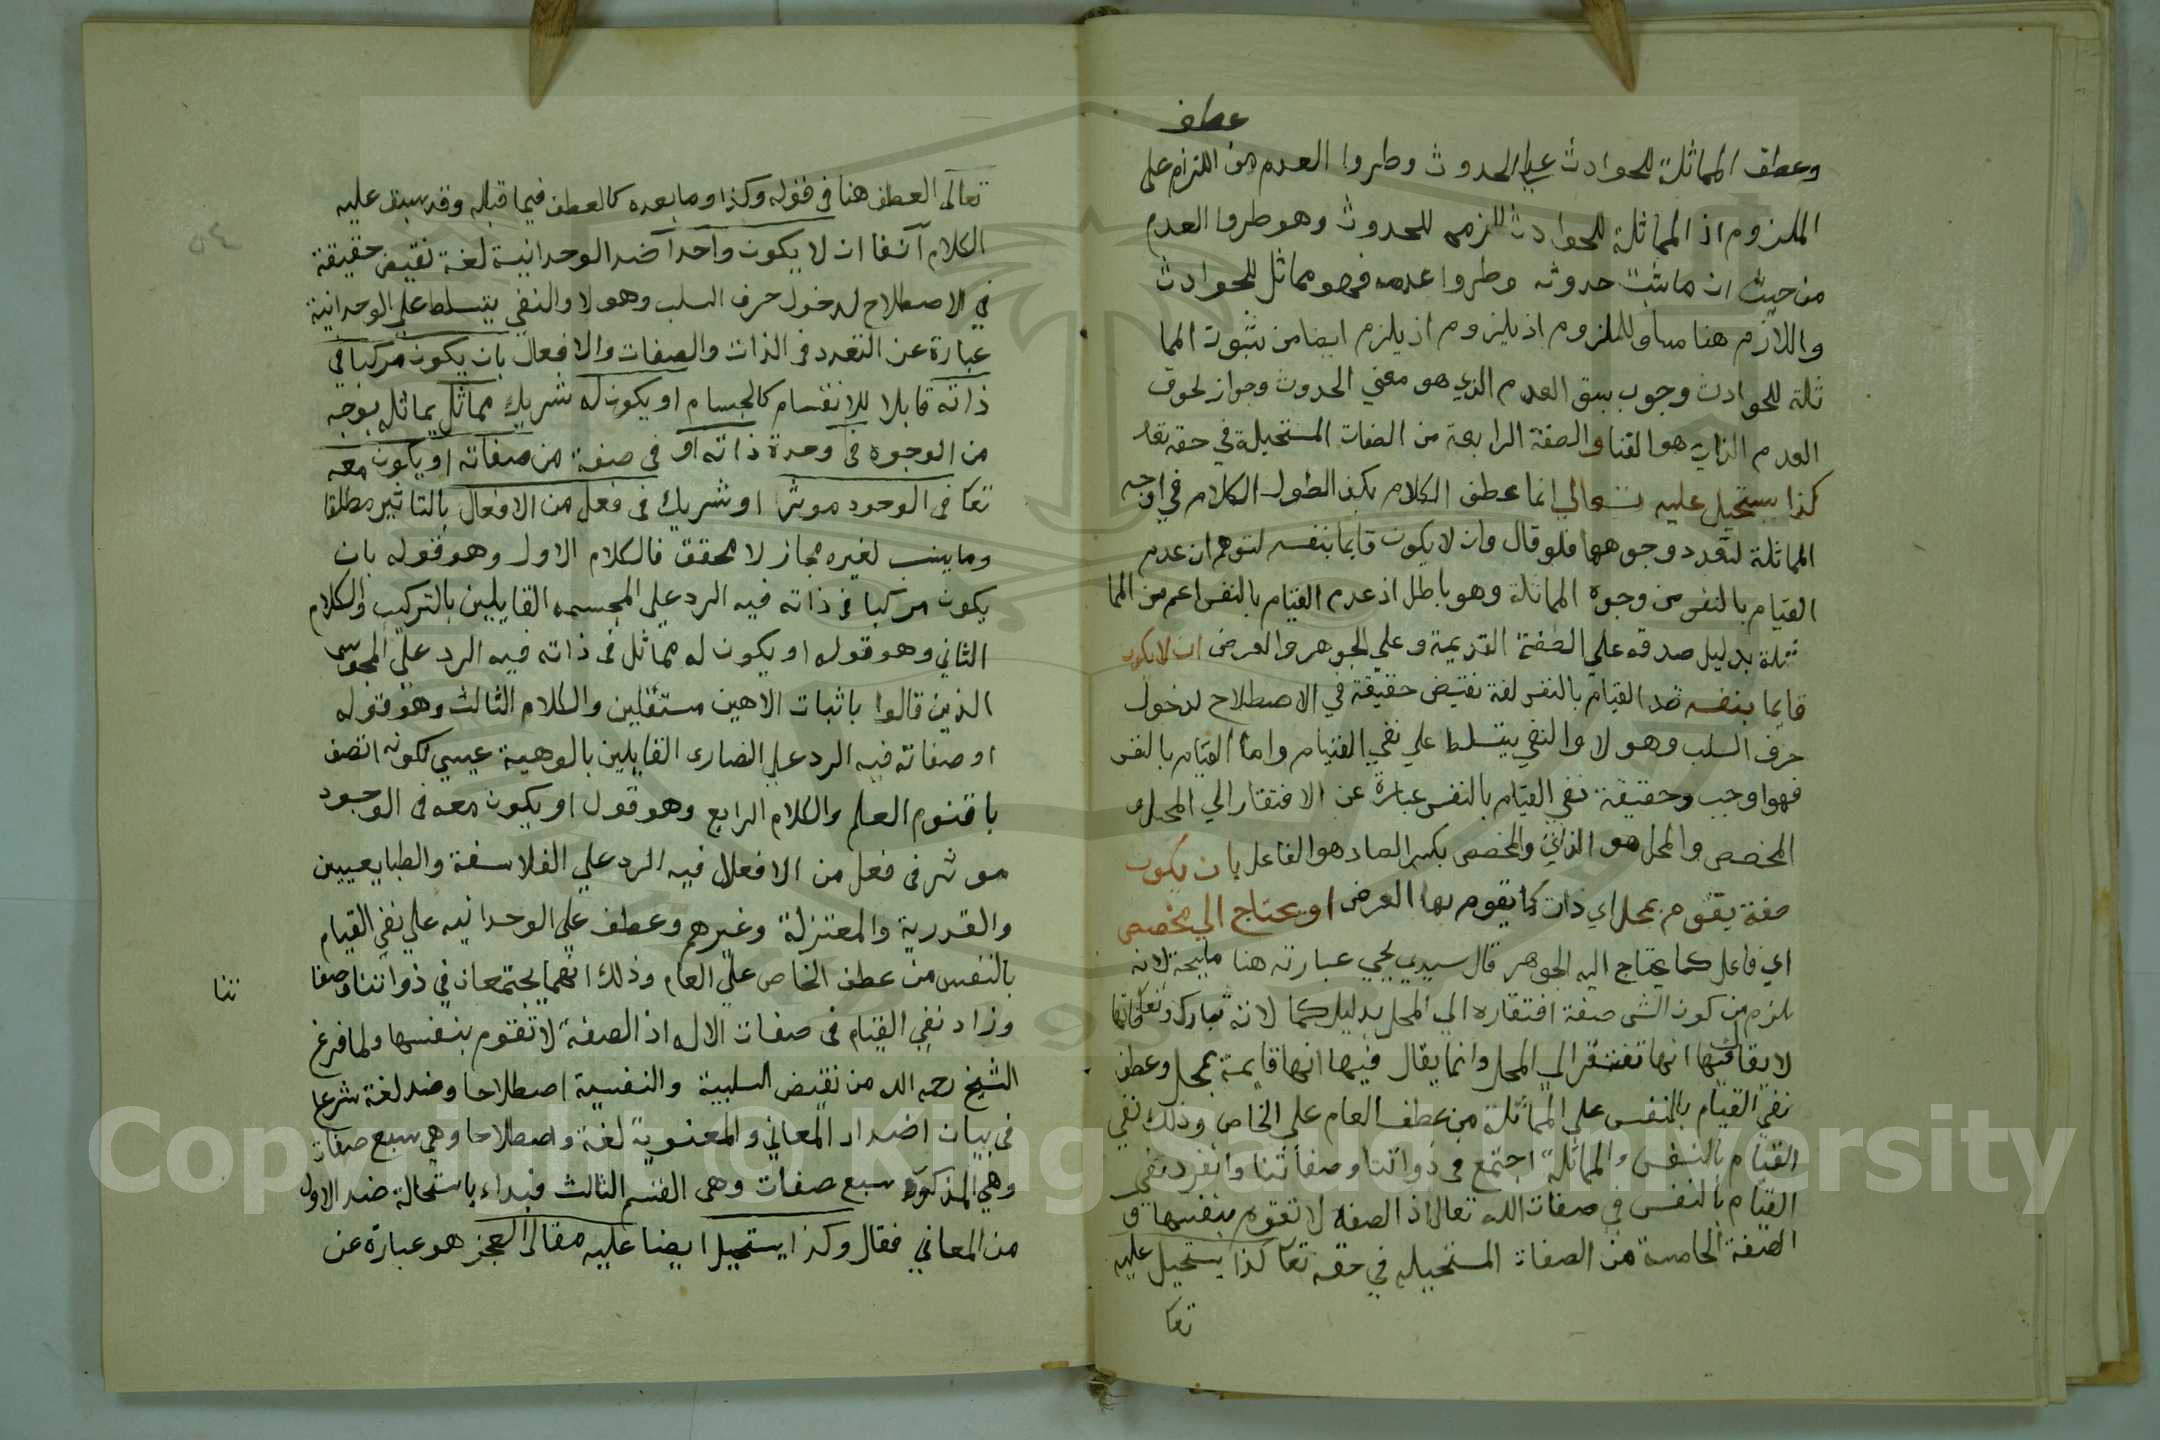 عطف
وعطف المماثلة للحوادث علي الحدوث وطروا العدم من اللازم على
الملزوم اذ المماثلة للحوادث للزمه للحدوث وهو طروا العدم
من حيث ان ما ثبت حدوثه وطروا عدمه فهو مماثل للحوادث
واللازم هنا مساو للملزوم اذ يلزوم اذ يلزم ايضا من ثبوت المما
ثلة للحوادث وجوب سبق العدم الذي هو معني الحدوث وجواز لحوق
العدم الذي هو الفنا والصفة الرابعة من الصفات المستحيلة في حقه تعا
كذا يستحيل عليه تعالي انما عطف الكلام بكذا لطول الكلام في اوجه
المماثلة لتعدد وجوهها فلو قال وان لا يكون قايما بنفسه لتوهم ان عدم
القيام بالنفس من وجوه المماثلة وهو باطل اذ عدم القيام بالنفس اعم من المما
ثلة بدليل صدقه علي الصفة القديمة وعلي الجوهر والعرض ان لا يكون
قايما بنفسه ضد القيام بالنفس لغة نقيض حقيقة في الاصطلاح لدخول
حرف السلب وهو لا والنفي يتسلط علي نفي القيام واما القيام بالنفس
فهو اوجب وحقيقة نفي القيام بالنفس عبارة عن الافتقار الي المحل و
المخصص والمحل هو الذات والمخصص بكسر الصاد هو الفاعل بان يكون
صفة يقوم بمحل اي ذات كما يقوم بها العرض او يحتاج الي مخصص
اي فاعل كما يحتاج اليه الجوهر قال سيدي يحيي عبارته هنا مليحة لانه
يلزم من كون الشي صفة افتقاره الي المحل بدليل كما لانه تبارك وتعا
لا يقال فيها انها تفتقر الي المحل وانما يقال فيها انها قايمة بمحل وعطف
نفي القيام بالنفس علي المماثلة من عطف العام علي الخاص وذلك نفي
القيام بالنفس والمماثلة اجتمع في ذواتنا وصفاتنا وانفرد نفي
القيام بالنفس في صفات الله تعالي اذ الصفة لا تقوم بنفسها و
الصفة الخامسة من الصفات المستحيله في حقه تعا كذا يستحيل عليه
تعا
تعالى العطف هنا في قوله وكذا وما بعده كالعطف فيما قبله وقد سبق عليه
الكلام آنفا ان لا يكون واحدا ضد الوحدانية لغة نقيض حقيقة
في الاصطلاح لدخول حرف السلب وهو لا والنفي يتسلط علي الوحدانية
عبارة عن التعدد في الذات والصفات والافعال بان يكون مركبا في
ذاته قابلا للانقسام كالجسام او يكون له شريك مماثل يماثله بوجه
من الوجوه في وحدة ذاته او في صفة من صفاته او يكون معه
تعا في الوجود موثرا او شريك في فعل من الافعال بالتاثير مطلقا
وما ينسب لغيره مجاز لا محقق فالكلام الاول وهو قوله بان
يكون مركبا في ذاته فيه الرد علي المجسمه القايلين بالتركيب والكلام
الثاني وهو قوله او يكون له مماثل في ذاته فيه الرد علي المجوسى
الذين قالوا باثبات الاهين مستقلين والكلام الثالث وهو قوله
او صفاته فيه الرد علي النصارى القايلين بالوهية عيسي لكونه اتصف
باقنوم العلم والكلام الرابع وهو قول او يكون معه في الوجود
موثر في فعل من الافعال فيه الرد علي الفلاسفة والطبايعيين
والقدرية والمعتزلة وغيرهم وعطف علي الوحدانيه علي نفي القيام
بالنفس من عطف الخاص علي العام وذلك انهما يجتمعان في ذواتنا وصفا
تنا
وزاد نفي القيام في صفات الاله اذ الصفة لا تقوم بنفسها ولما فرغ
الشيخ رحمه الله من نقيض السلبية والنفسية اصطلاحا وضد لغة شرع
في بيان اضداد المعاني والمعنوية لغة واصطلاحا وهي سبع صفات
وهي المذكورة سبع صفات وهى القسم الثالث فبداء باستحالة ضد الاول
من المعاني فقال وكذا يستحيل ايضا عليه مقالى العجز هو عبارة عن
٥٤
Copyright © King Saud University